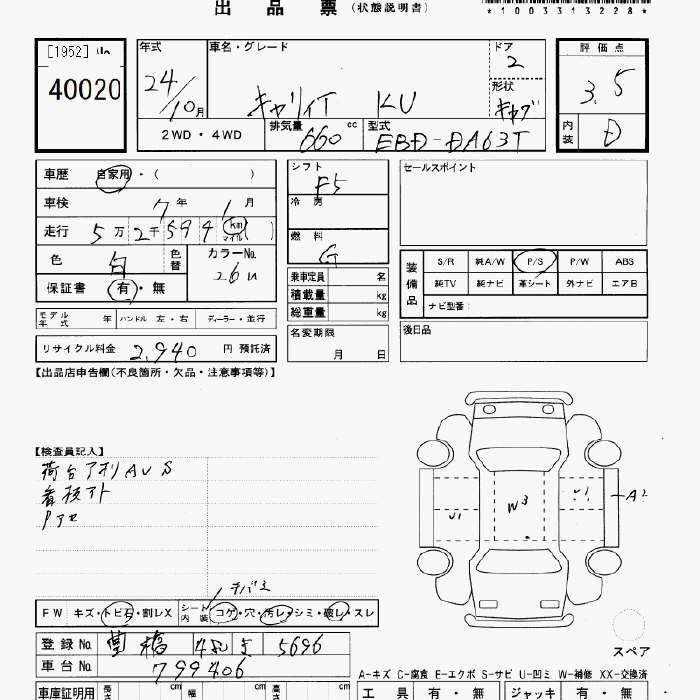 出品票（状態説明書）
*1003313228*
[1952]
40020
年式 24/10月
車名・グレード キャリイT KU
ドア 2
形状 キャブ
2WD・4WD
排気量 660 cc
型式 EBD-DA63T
評価点 3.5
内装 D
車歴 自家用・（ ）
車検 7年 1月
走行 5万2千594 km マイル（ ）
色 白 色替
カラーNo. 26U
保証書 有・無
シフト F5
冷房
燃料 G
乗車定員 名
積載量 kg
総重量 kg
セールスポイント
装備品
S/R 純A/W P/S P/W ABS
純TV 純ナビ 革シート 外ナビ エアB
ナビ型番：
モデル年式 年 ハンドル 左・右 ディーラー・並行
名変期限 月 日
後日品
リサイクル料金 2,940 円 預託済
【出品店申告欄(不良箇所・欠品・注意事項等)】
【検査員記入】
荷台アオリAUS
看板アト
Pアセ
W3
U1
U1
A2
スペア
FW キズ・トビ石・割レX
シート内装 コゲ・穴・汚レ・シミ・破レ・スレ
登録No. 5696
車台No. 799406
A-キズ C-腐食 E-エクボ S-サビ U-凹ミ W-補修 XX-交換済
車庫証明用 長さ cm 幅 cm 高さ cm
工具 有・無 ジャッキ 有・無